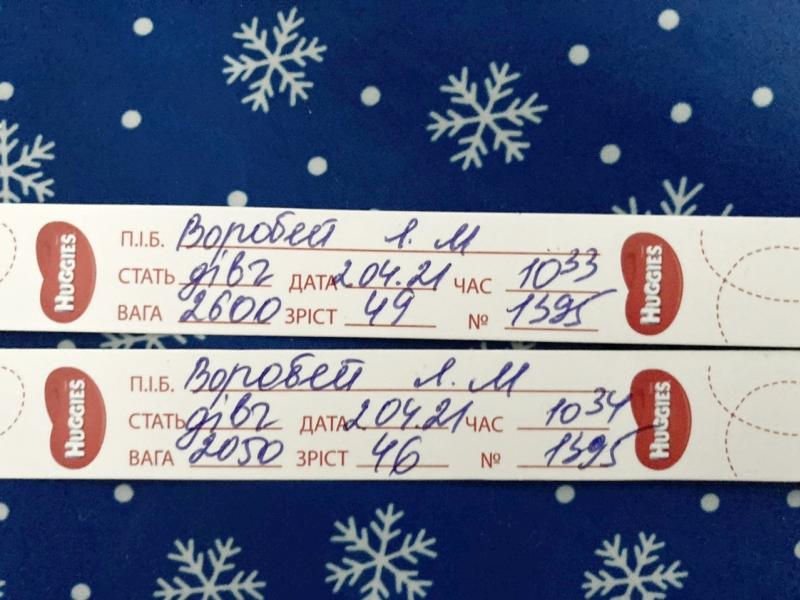 HUGGIES
П.І.Б. Воробей Л. М
СТАТЬ дівч ДАТА 2.04.21 ЧАС 10 33
ВАГА 2600 ЗРІСТ 49 № 1395
HUGGIES
HUGGIES
П.І.Б. Воробей Л. М
СТАТЬ дівч ДАТА 2.04.21 ЧАС 10 34
ВАГА 2050 ЗРІСТ 46 № 1395
HUGGIES